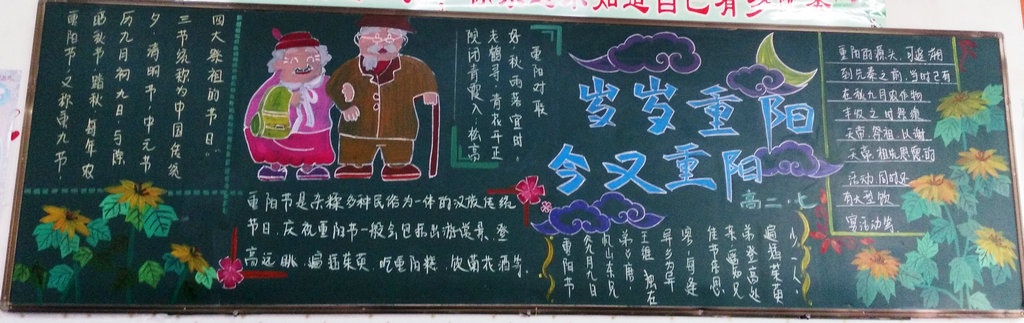 知道自己有多
重阳节,又称重九节
踏秋节,踏秋,每年农
历九月初九日,与除
夕、清明节、中元节
三节统称为中国传统
四大祭祖的节日。
院闭青霞入,松高
老鹤寻,青花开正
好,秋雨落宜时,
重阳对联
重阳节是杂糅多种民俗为一体的汉族传统
节日,庆祝重阳节一般会包括出游赏景、登
高远眺、遍插茱萸、吃重阳糕、饮菊花酒等。
岁岁重阳
今又重阳
高二·七
重阳节
九月九日
忆山东兄
弟 唐
王维 独在
异乡为异
客,每逢
佳节倍思
亲。遥知兄
弟登高处,
遍插茱萸
少一人。
重阳的源头,可追溯
到先秦之前,当时已有
在秋九月农作物
丰收之时祭飨
天帝、祭祖,以谢
天帝、祖先恩德的
活动,同时还
有大型饮
宴活动等。